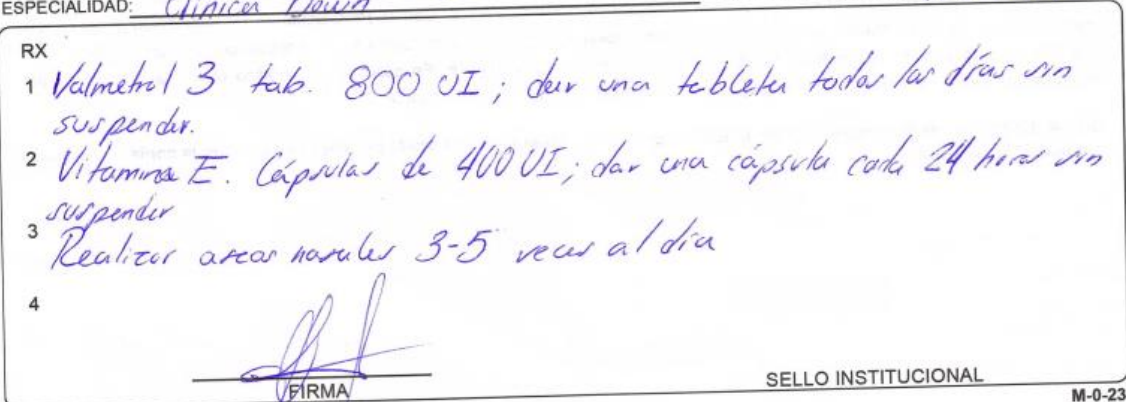 ESPECIALIDAD: Clínica Down
RX
1 Valmetrol 3 tab. 800 UI; dar una tableta todos los días sin
suspender.
2 Vitamina E. Cápsulas de 400 UI; dar una cápsula cada 24 horas sin
suspender
3 Realizar aseos nasales 3-5 veces al día
4
FIRMA
SELLO INSTITUCIONAL
M-0-23